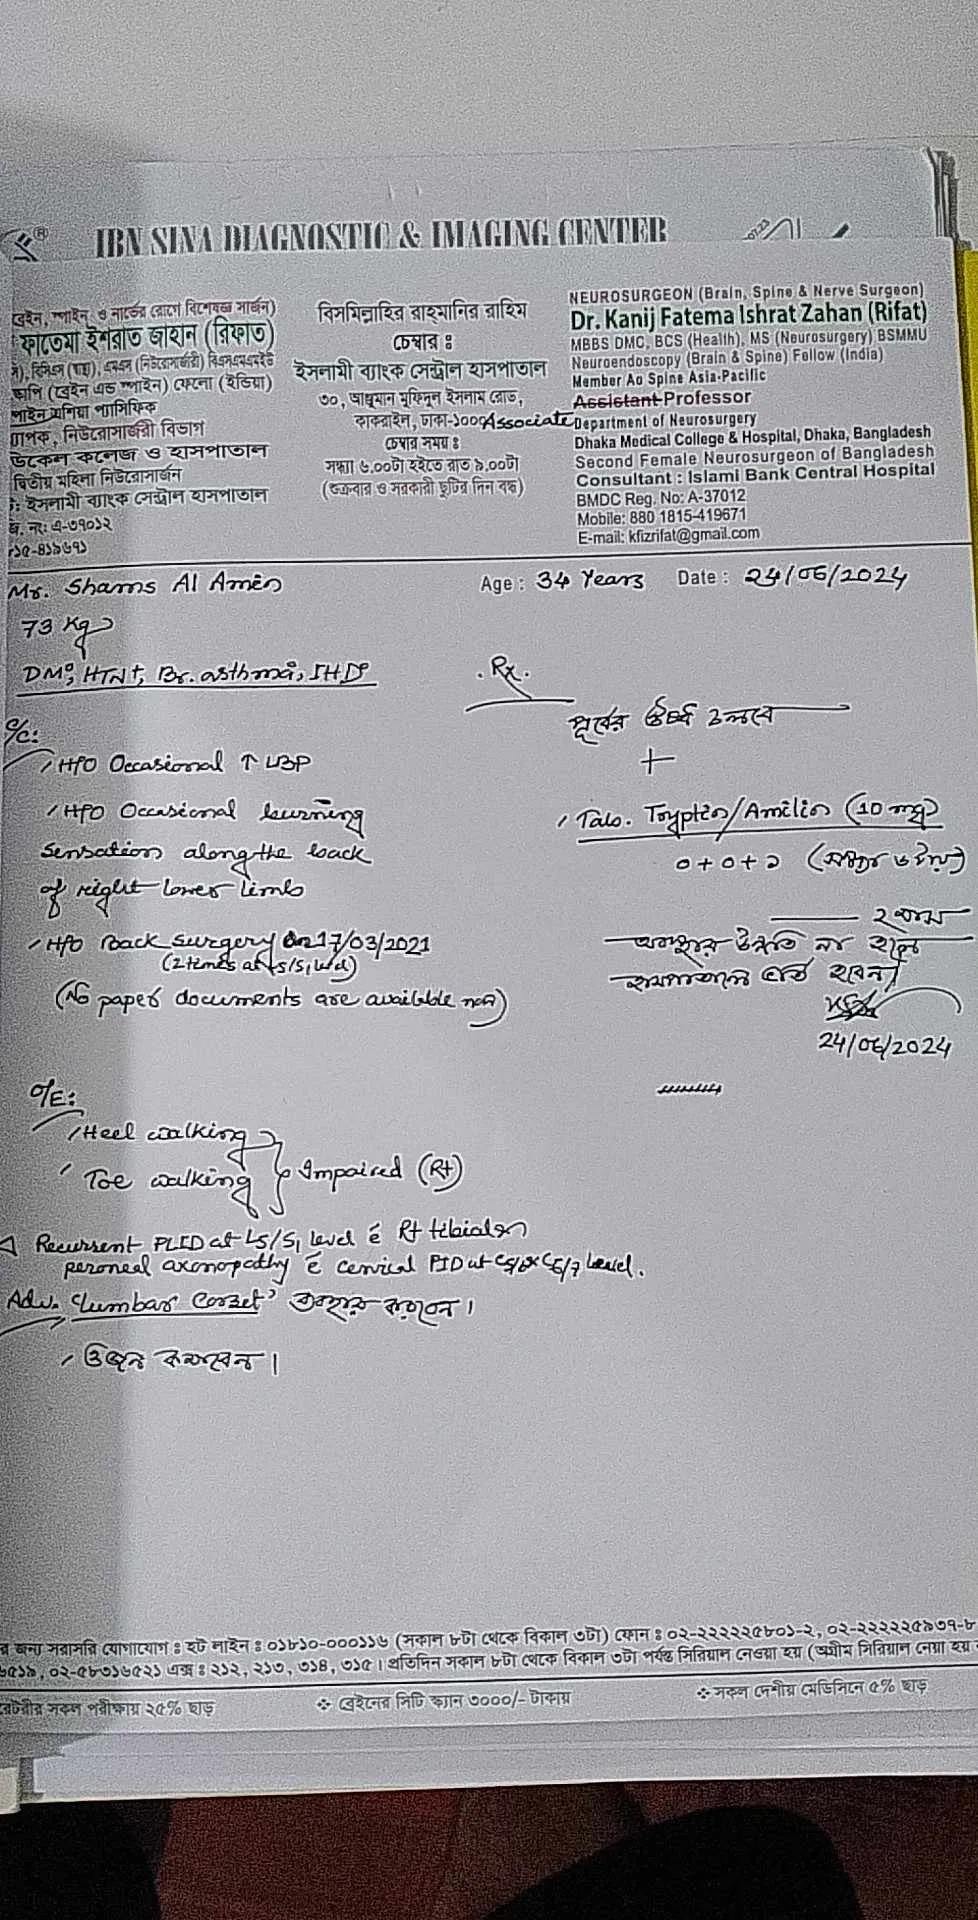 IBN SINA DIAGNOSTIC & IMAGING CENTER
ব্রেইন, স্পাইন ও নার্ভের রোগে বিশেষজ্ঞ সার্জন)
ফাতেমা ইশরাত জাহান (রিফাত)
স্পাইন এশিয়া প্যাসিফিক
পক, নিউরোসার্জারী বিভাগ
ডিকেল কলেজ ও হাসপাতাল
দ্বিতীয় মহিলা নিউরোসার্জন
ট: ইসলামী ব্যাংক সেন্ট্রাল হাসপাতাল
নং: এ-৩৭০১২
১৫-৪১৯৬৭১
বিসমিল্লাহির রাহমানির রাহিম
চেম্বার ঃ
ইসলামী ব্যাংক সেন্ট্রাল হাসপাতাল
৩০, আঞ্জুমান মুফিদুল ইসলাম রোড,
কাকরাইল, ঢাকা-১০০০
চেম্বার সময় ঃ
সন্ধ্যা ৬.০০টা হইতে রাত ৯.০০টা
(শুক্রবার ও সরকারী ছুটির দিন বন্ধ)
NEUROSURGEON (Brain, Spine & Nerve Surgeon)
Dr. Kanij Fatema Ishrat Zahan (Rifat)
MBBS DMC, BCS (Health), MS (Neurosurgery) BSMMU
Neuroendoscopy (Brain & Spine) Fellow (India)
Member Ao Spine Asia-Pacific
Assistant Professor
Associate Department of Neurosurgery
Dhaka Medical College & Hospital, Dhaka, Bangladesh
Second Female Neurosurgeon of Bangladesh
Consultant : Islami Bank Central Hospital
BMDC Reg. No: A-37012
Mobile: 880 1815-419671
E-mail: kfizrifat@gmail.com
Mr. Shams Al Amin Age : 34 Years Date : 24/06/2024
73 Kg
DM°, HTN+, Br. asthma°, IHD°
C/C:
H/O Occasional ↑ LBP
H/O Occasional burning
sensation along the back
of right lower limb
H/O Back surgery on 17/03/2021
(2 times at L5/S1 level)
(No paper documents are available now)
O/E:
Heel walking
Toe walking } Impaired (Rt)
Δ Recurrent PLID at L5/S1 level c̄ Rt tibial &
peroneal axonopathy c̄ cervical PID at C5/6 & C6/7 level.
Adv. 'Lumbar Corset' ব্যবহার করবেন।
ওজন কমাবেন।
Rx.
পূর্বের ঔষধ চলবে
+
Tab. Tryptin/Amilin (10 mg)
০+০+১
২ মাস
অবস্থার উন্নতি না হলে
হাসপাতালে ভর্তি হবেন
24/06/2024
জন্য সরাসরি যোগাযোগ ঃ হট লাইন ঃ ০১৮১০-০০০১১৬ (সকাল ৮টা থেকে বিকাল ৩টা) ফোন ঃ ০২-২২২২২৫৮০১-২, ০২-২২২২২৫৯৩৭-৮
০২-৫৮৩১৬৫২১ এক্স ঃ ২১২, ২১৩, ৩১৪, ৩১৫ । প্রতিদিন সকাল ৮টা থেকে বিকাল ৩টা পর্যন্ত সিরিয়াল নেওয়া হয় (অগ্রীম সিরিয়াল নেয়া হয়
সকল পরীক্ষায় ২৫% ছাড়
❖ ব্রেইনের সিটি স্ক্যান ৩০০০/- টাকায়
❖ সকল দেশীয় মেডিসিনে ৫% ছাড়